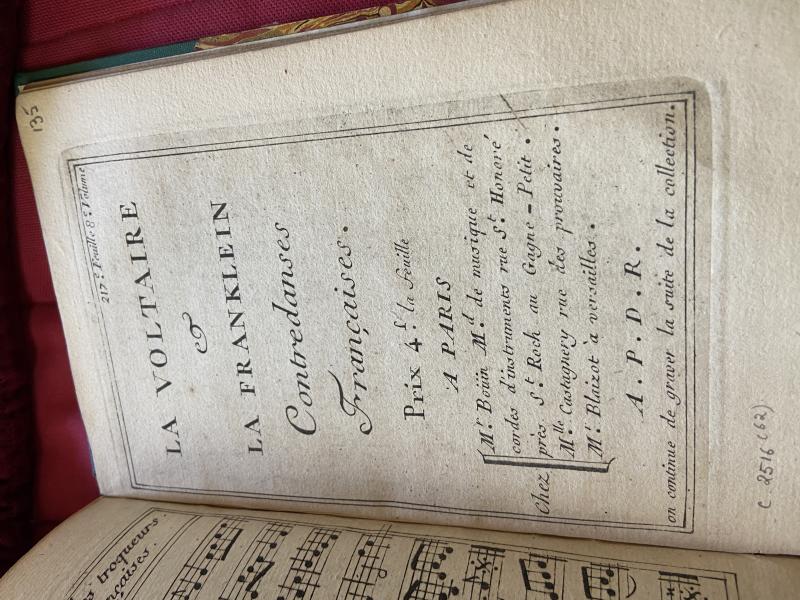 135
217.e Feuille 8.e Volume
LA VOLTAIRE
&
LA FRANKLEIN
Contredanses
Françaises.
Prix 4.f la feuille
A PARIS
Chez
M.r Boüin M.d de musique et de
cordes d'instruments rue S.t Honoré
près S.t Roch au Gagne-Petit.
M.lle Castagnery rue des prouvaires.
M.r Blaizot à versailles.
A.P.D.R.
on continue de graver la suite de la collection.
C 2516 (62)
troqueurs.